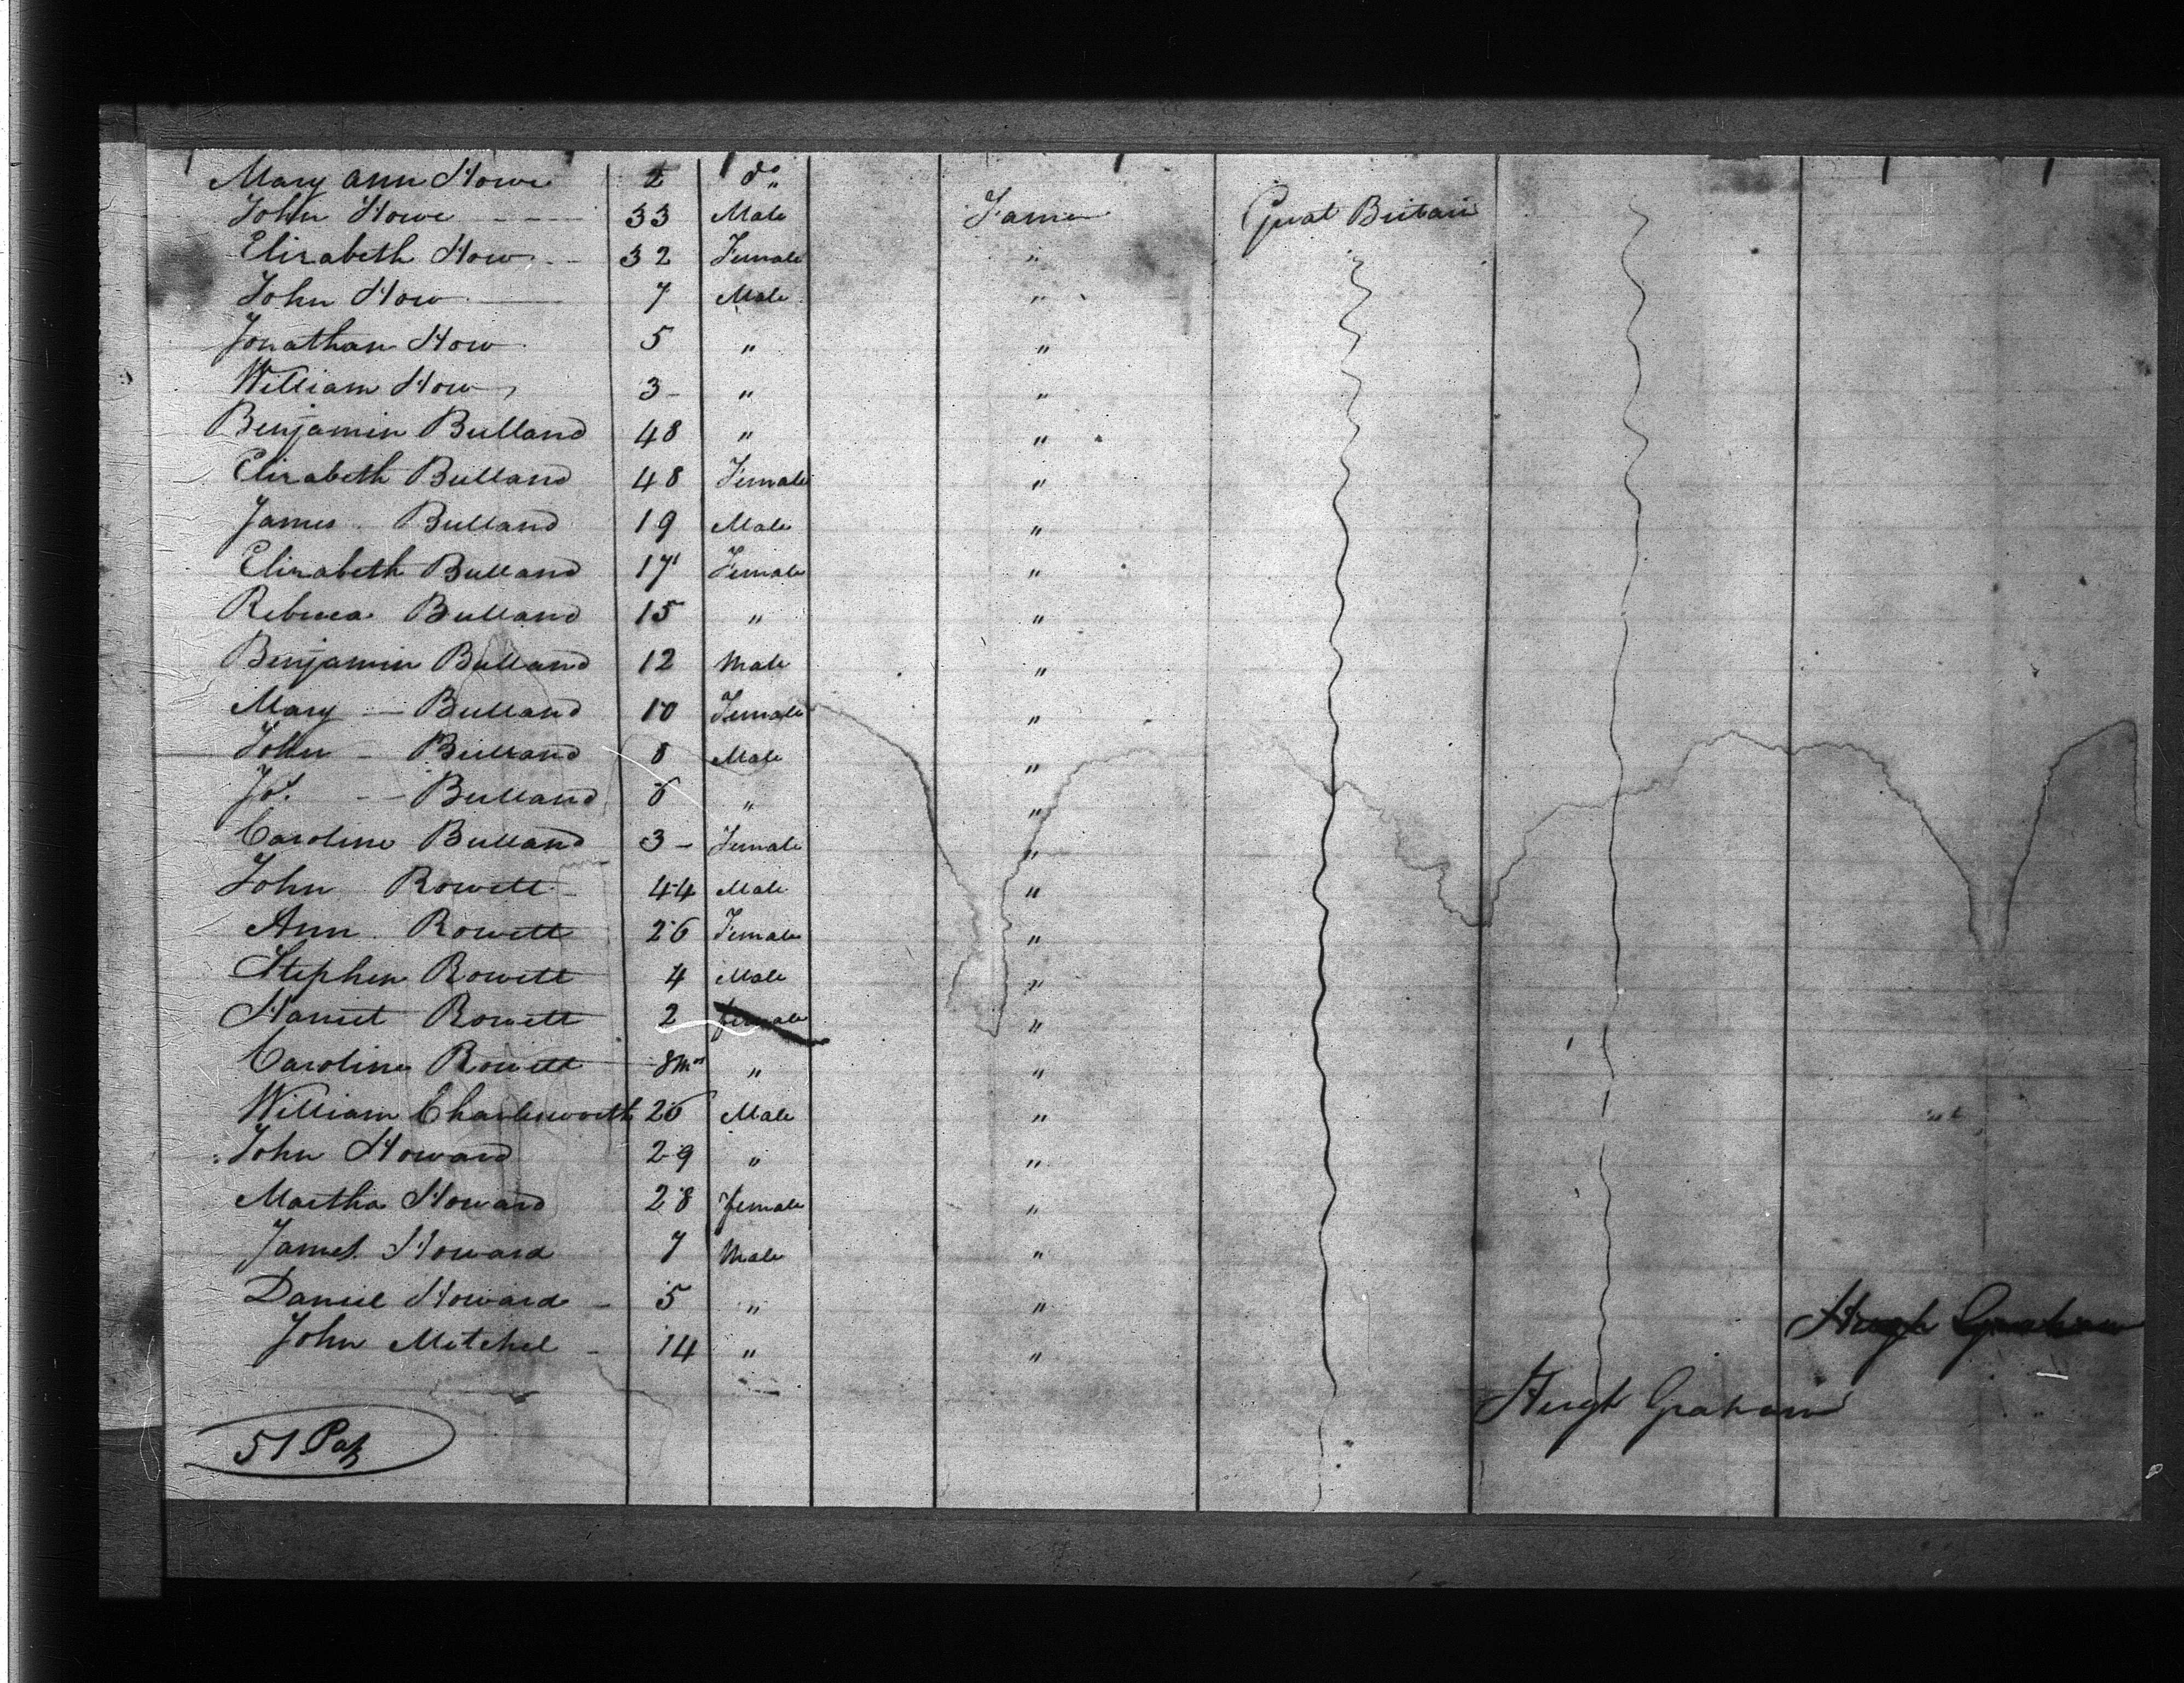 Mary Ann Howe 2 do
John Howe - - - 33 Male Farmer Great Britain
Elizabeth How - - 32 Female "
John How 7 Male "
Jonathan How 5 " "
William How 3 - " "
Benjamin Bulland 48 " "
Elizabeth Bulland 48 Female "
James Bulland 19 Male "
Elizabeth Bulland 17 Female "
Rebecca Bulland 15 " "
Benjamin Bulland 12 Male "
Mary - Bulland 10 Female "
John - Bulland 8 Male "
Jos. - - Bulland 6 " "
Caroline Bulland 3 - Female "
John Rowett 44 Male "
Ann Rowett 26 Female "
Stephen Rowett 4 Male "
Harriet Rowett 2 female "
Caroline Rowett 8 Mos " "
William Charlesworth 26 Male "
John Howard 29 " "
Martha Howard 28 female "
James Howard 7 Male "
Daniel Howard - 5 " "
Hugh Graham
John Mitchel - 14 " "
Hugh Graham
51 Pas